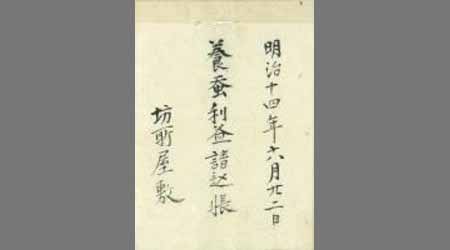 明治十四年六月廿二日
養蚕利益諸帳
坊所屋敷